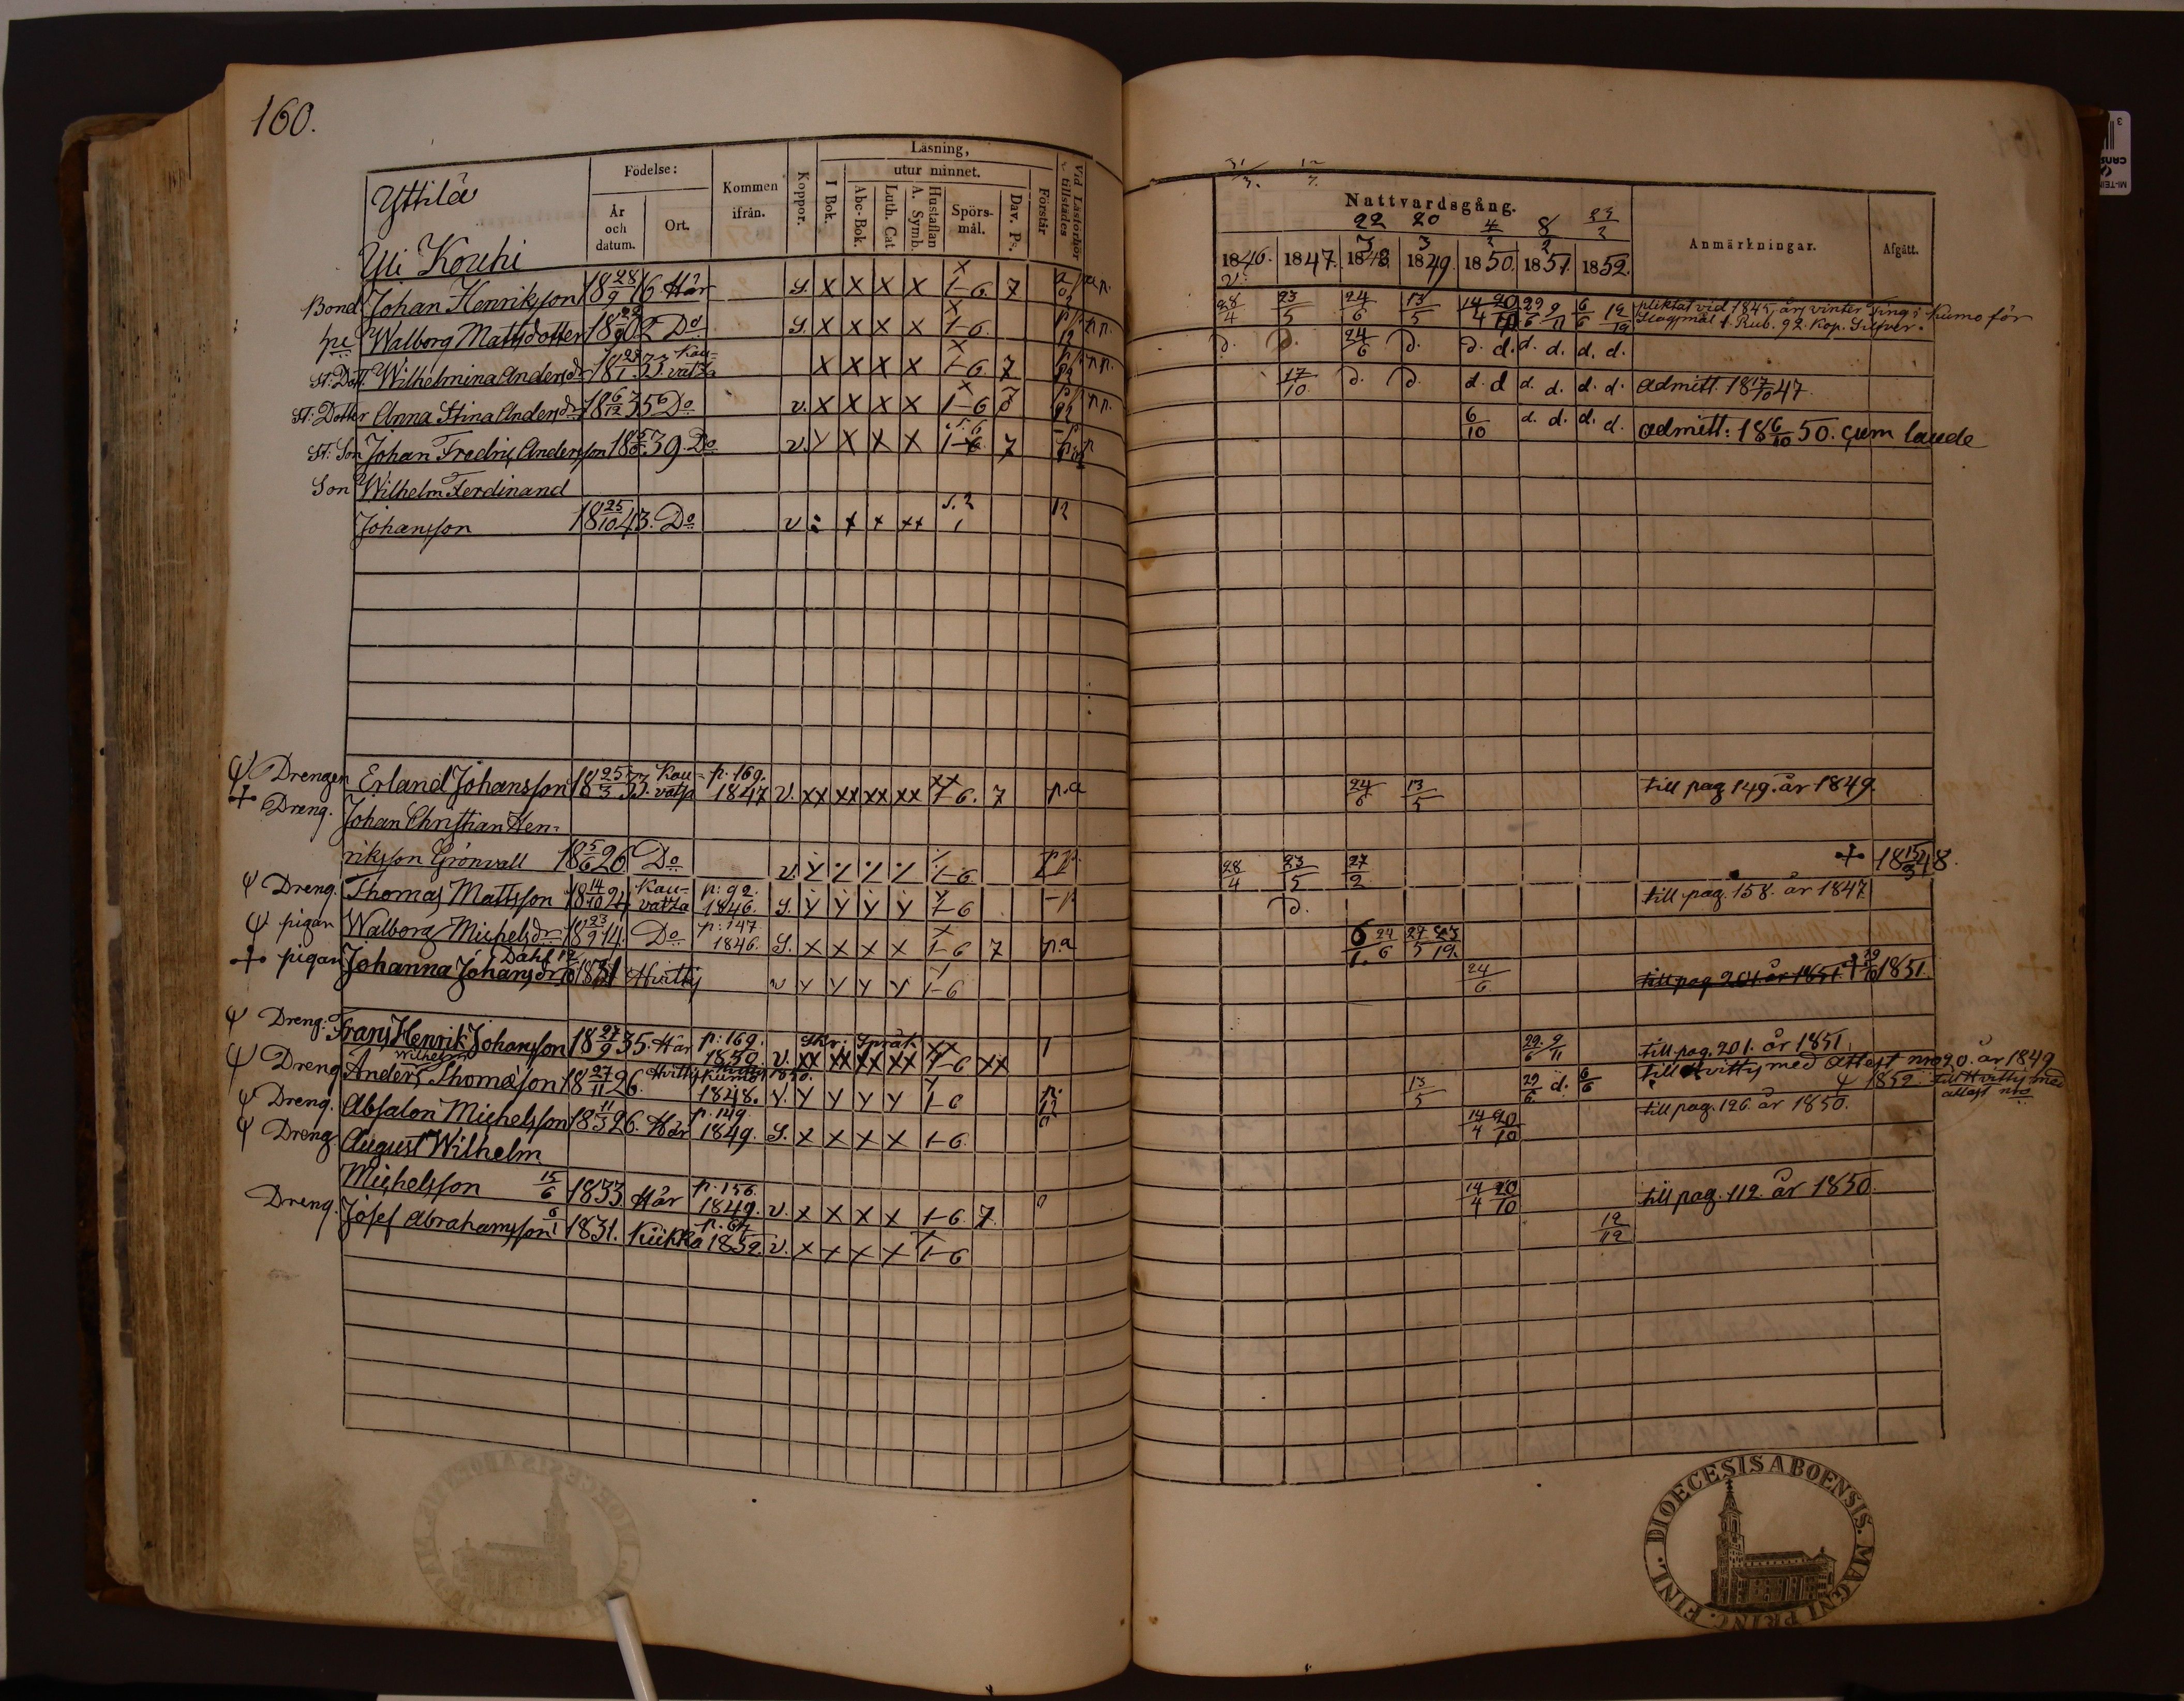 160.
Yttilä
Yli Kouhi
Födelse:
År och datum.
Ort.
Kommen ifrån.
Koppor.
Läsning,
I Bok.
utur minnet.
Abc-Bok.
Luth. Cat
A. Symb. Hustaflan
Spörsmål.
Dav. Ps.
Förstår
Vid Läsförhör tillstädes
Nattvardsgång.
22 20 4 8 23
3 3 2 2 2
1846. 1847. 1848 1849. 1850. 1851. 1852.
Anmärkningar.
Afgått.
Bond Johan Henriksson 18 28/9 16. Här S. x x x x 1-6. 7 28/4 23/5 24/6 13/5 14/4 20/10 29/6 9/11 6/6 12/12 pliktat vid 1845 års vinter Ting i Kumo för
Slagsmål 1. Rub. 92. Kop. Silfver.
hu Walborg Mattsdotter 18 22/9 02 Do S. x x x x 1-6. d. d. 24/6 d. d. d. d. d. d. d.
St: Dott. Wilhelmina Andersdr 18 23/1 33. Kauvatza x x x x 1-6. 7 17/10 d. d. d. d d. d. d. d. admitt. 18 17/10 47.
St: Dotter Anna Stina Andersdr 18 6/12 35 Do v. x x x x 1-6 7 6/10 d. d. d. d. admitt: 18 6/10 50. cum laude
St: Son Johan Fredric Andersson 18 39. Do v. y x x x 1-6 7
Son Wilhelm Ferdinand
Johansson 18 25/10 43. Do v x x xx 1 12
Ψ Drengen Erland Johansson 18 25/3 33. Kauvatsa p. 169. 1847 v. xx xx xx xx 1-6. 7 p.a 24/6 13/5 till pag 149. år 1849.
+ Dreng. Johan Christian Hen=
riksson Grönvall 18 5/6 26 Do v. 1-6. 28/4 23/5 27/2 + 18 15/3 48.
Ψ Dreng. Thomas Mattsson 18 14/10 24. Kauvatza p: 92. 1846. S. y y y y 1-6 d. till pag. 158. år 1847
Ψ pigan Walborg Michelsdr 18 23/9 14. Do p: 147 1846. S. x x x x 1-6 7 p.a 6/1. 24/6 27/5 23/19. 
+ pigan Johanna Johansdr Dahl 12/10 1831 Hvittis v y y y y 1-6 24/6 till pag 201. år 1851. + 29/10 1851.
Ψ Dreng: Frans Henrik Johansson 18 27/9 35. Här p: 169. 1850. v. Skr: Språk xx xx xx xx 1-6 xx 29/6 9/11 till pag. 201. år 1851.
Ψ Dreng Anders Wilhelm Thomasson 18 27/11 26. Hvittis Kumo 1848. v. y y y y 1-6 13/5 29/6 d. 6/6 till Hvittis med Attest nro 20. år 1849
Ψ 1852. till Hvittis med attest nro
Ψ Dreng. Absalon Michelsson 18 11/3 26. Här p. 149. 1849. S. x x x x 1-6. 14/4 20/10 till pag. 126. år 1850.
Ψ Dreng August Wilhelm
Michelsson 15/6 1833. Här p. 156. 1849. v. x x x x 1-6. 7. 14/4 20/10 till pag. 112. år 1850.
Dreng. Josef Abrahamsson 6/1 1831. Kiikka p. 64 1852. v. x x x x 1-6 12/12
DIOECESIS ABOENSIS. MAGNI PRINC. FINL.